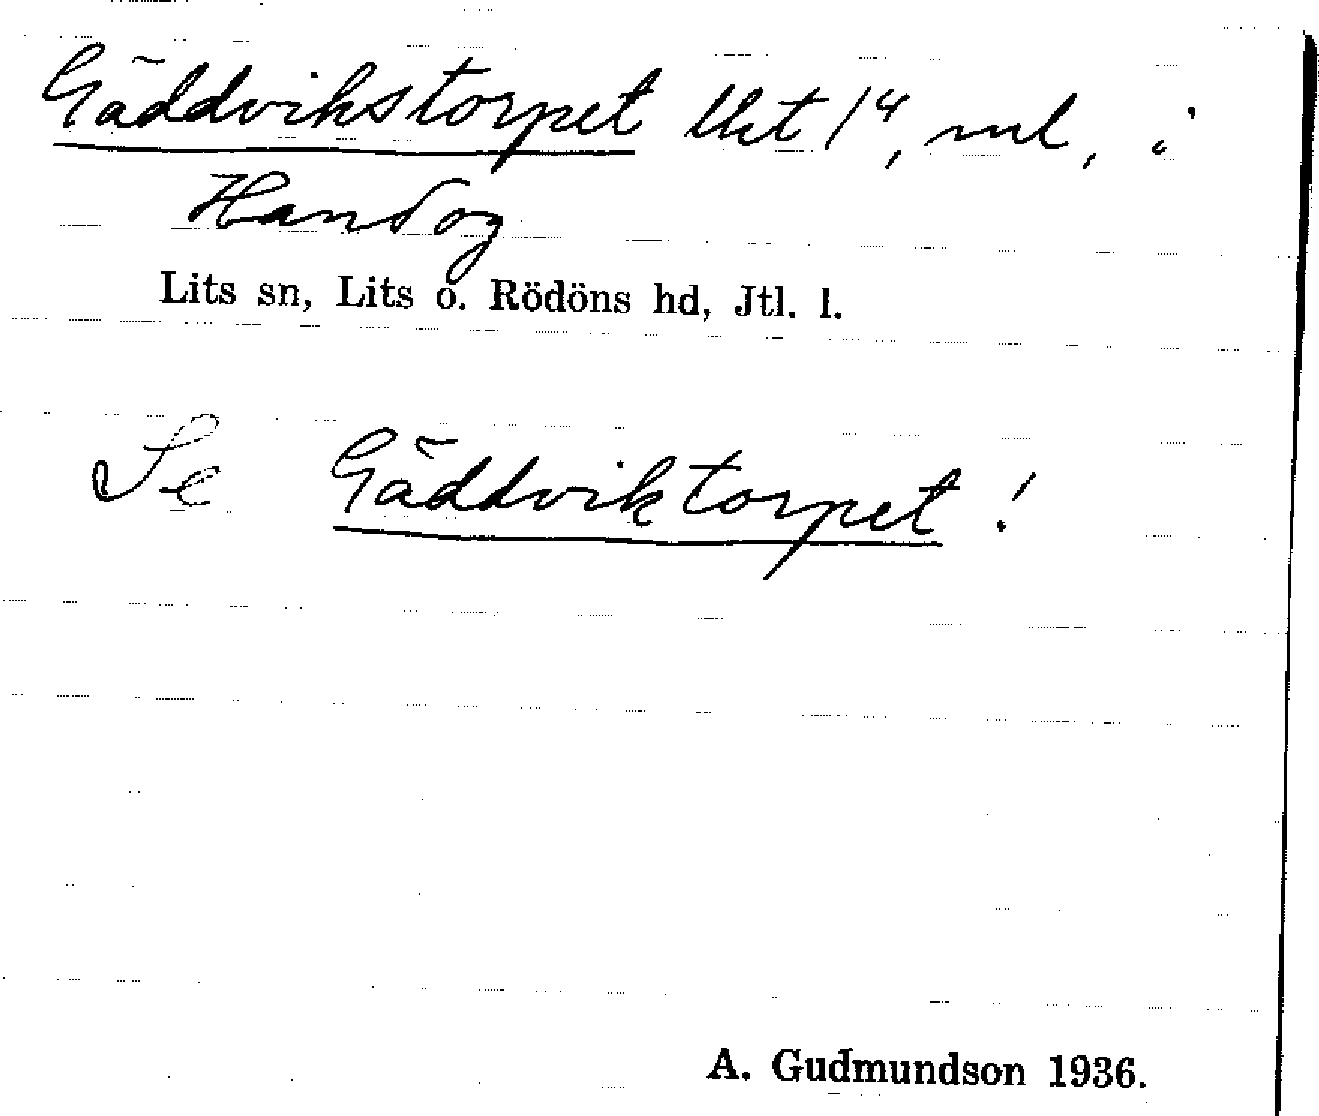 Gäddvikstorpet Ukt 14, ml, i
Handog
Lits sn, Lits o. Rödöns hd, Jtl. l.
Se Gäddviktorpet!
A. Gudmundson 1936.